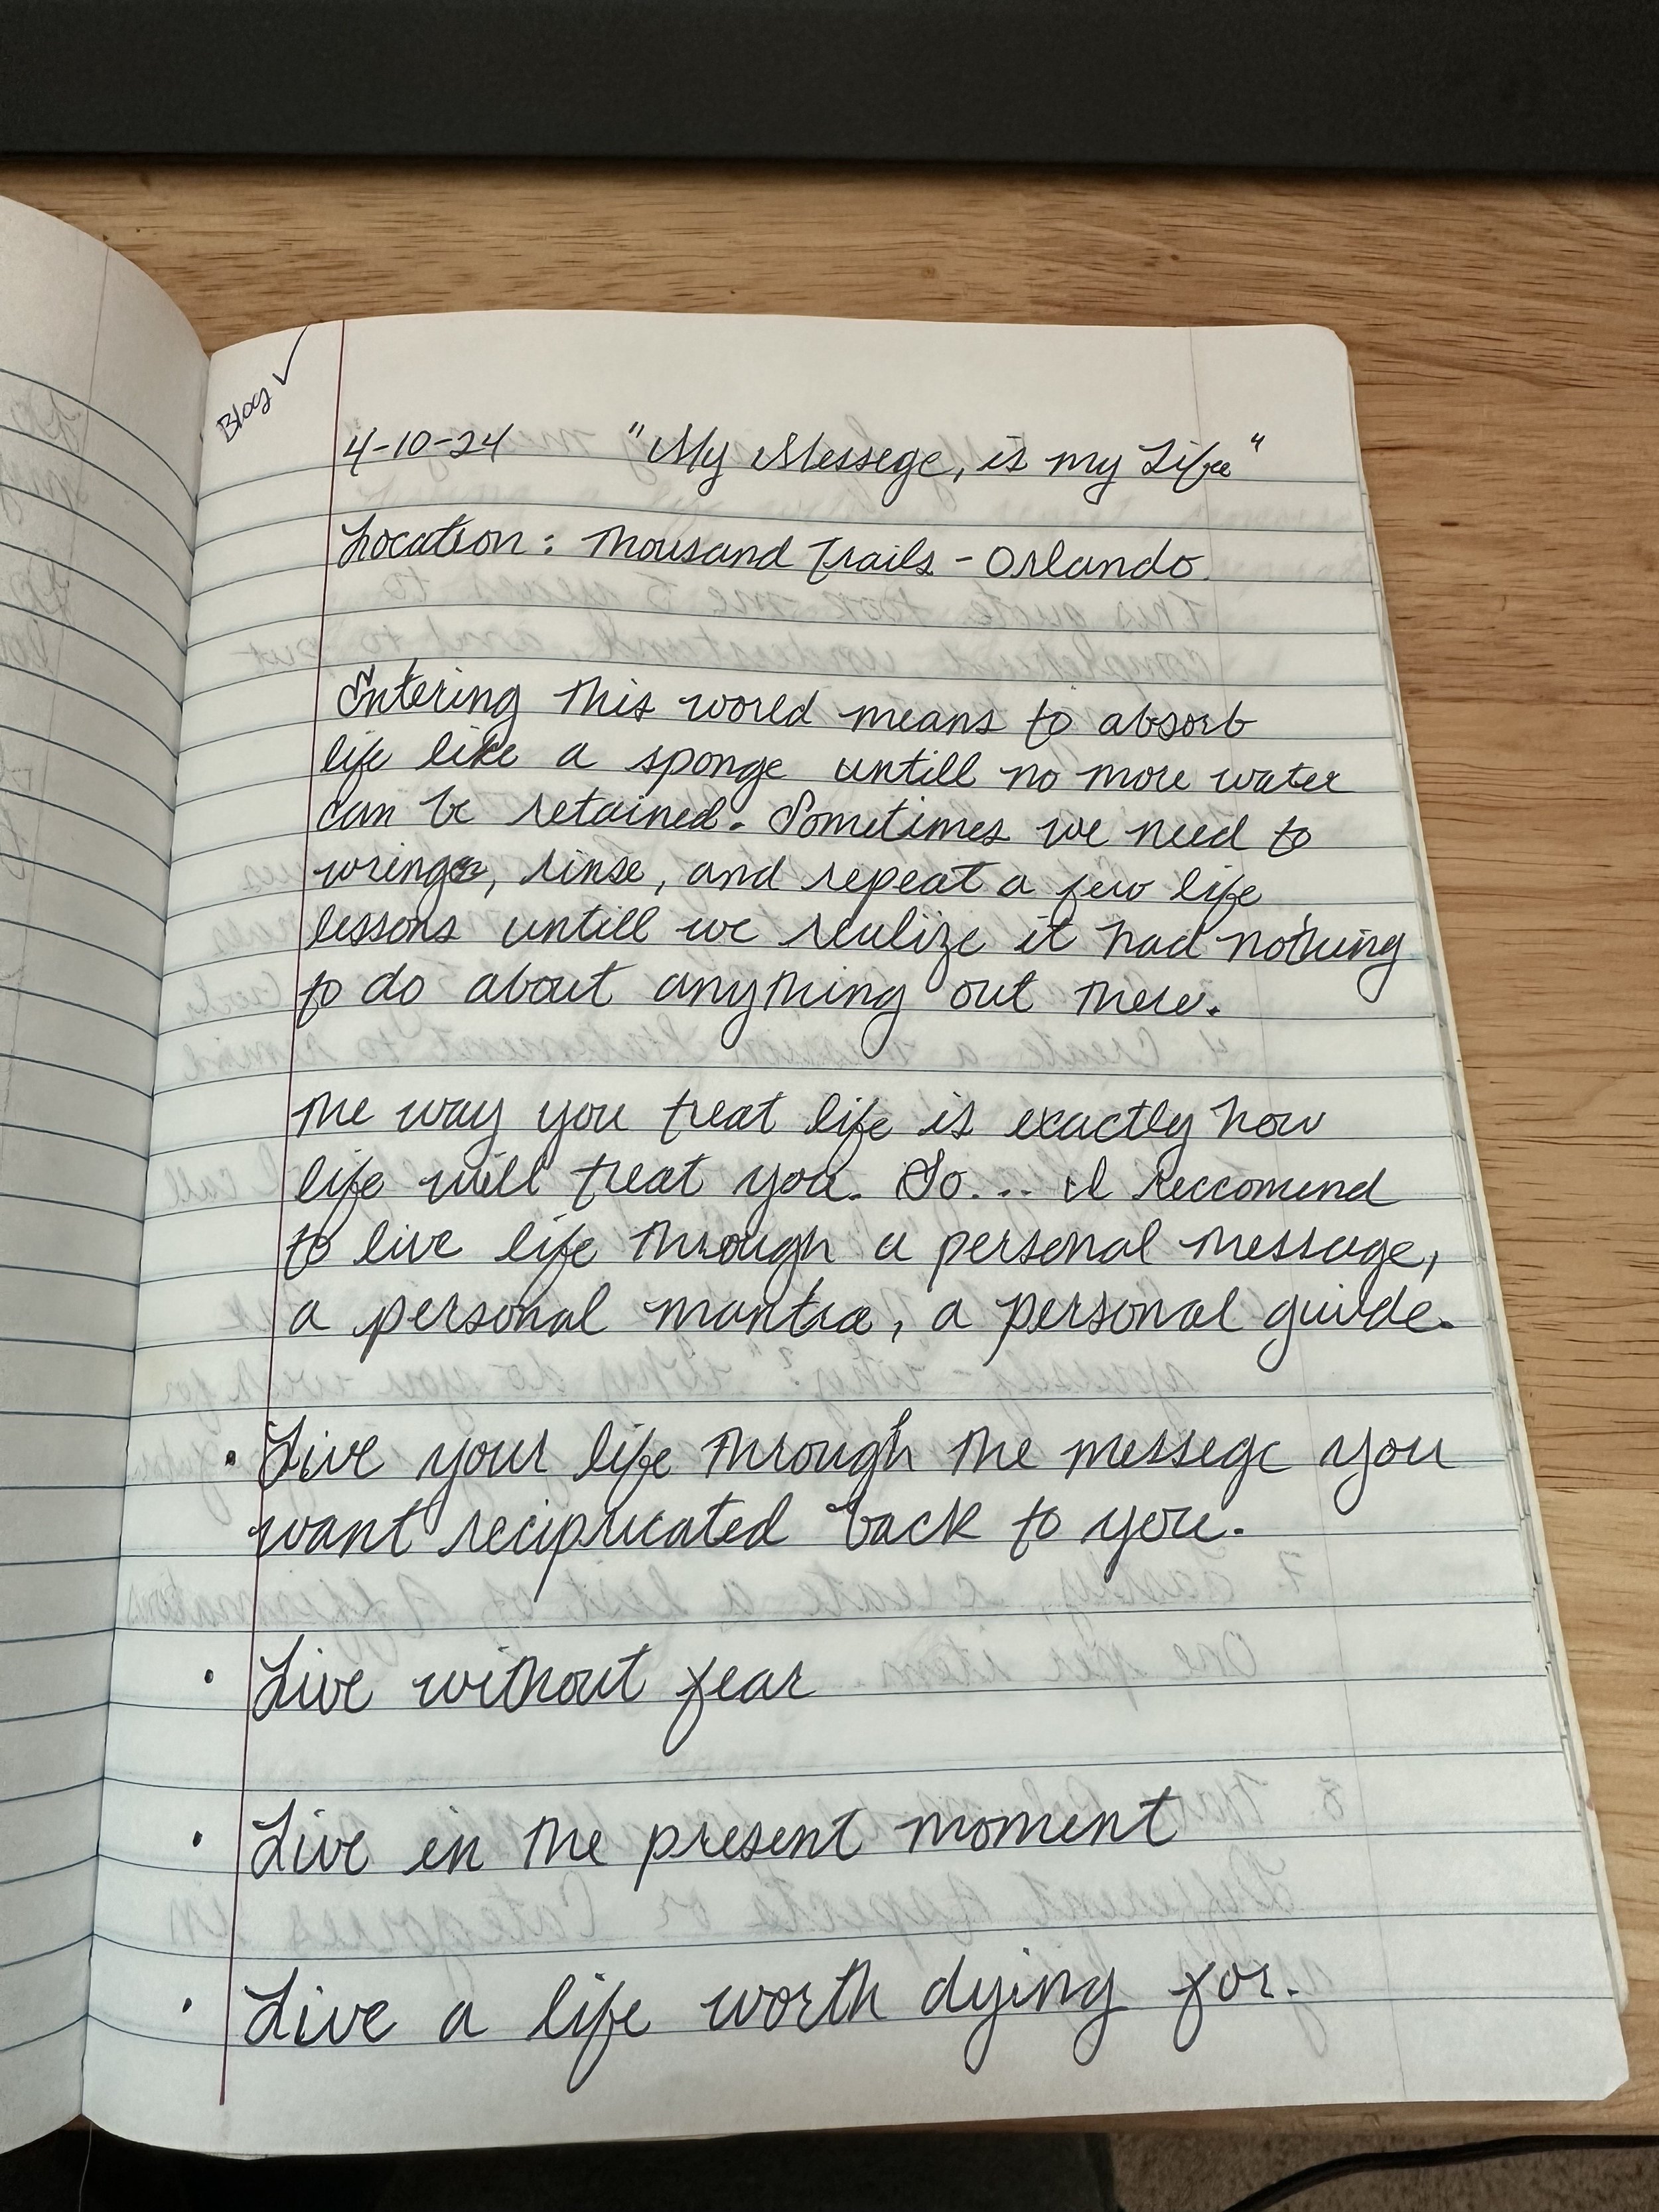 Blog ✓
4-10-24 "My Messege, is my Life"
Location: Thousand Trails - Orlando
Entering this world means to absorb
life like a sponge untill no more water
can be retained. Sometimes we need to
wringe, rinse, and repeat a few life
lessons untill we realize it had nothing
to do about anything out there.
The way you treat life is exactly how
life will treat you. So... I Reccomend
to live life through a personal message,
a personal mantra, a personal guide.
• Live your life through the messege you
want recipricated back to you.
• Live without fear
• Live in the present moment
• Live a life worth dying for.